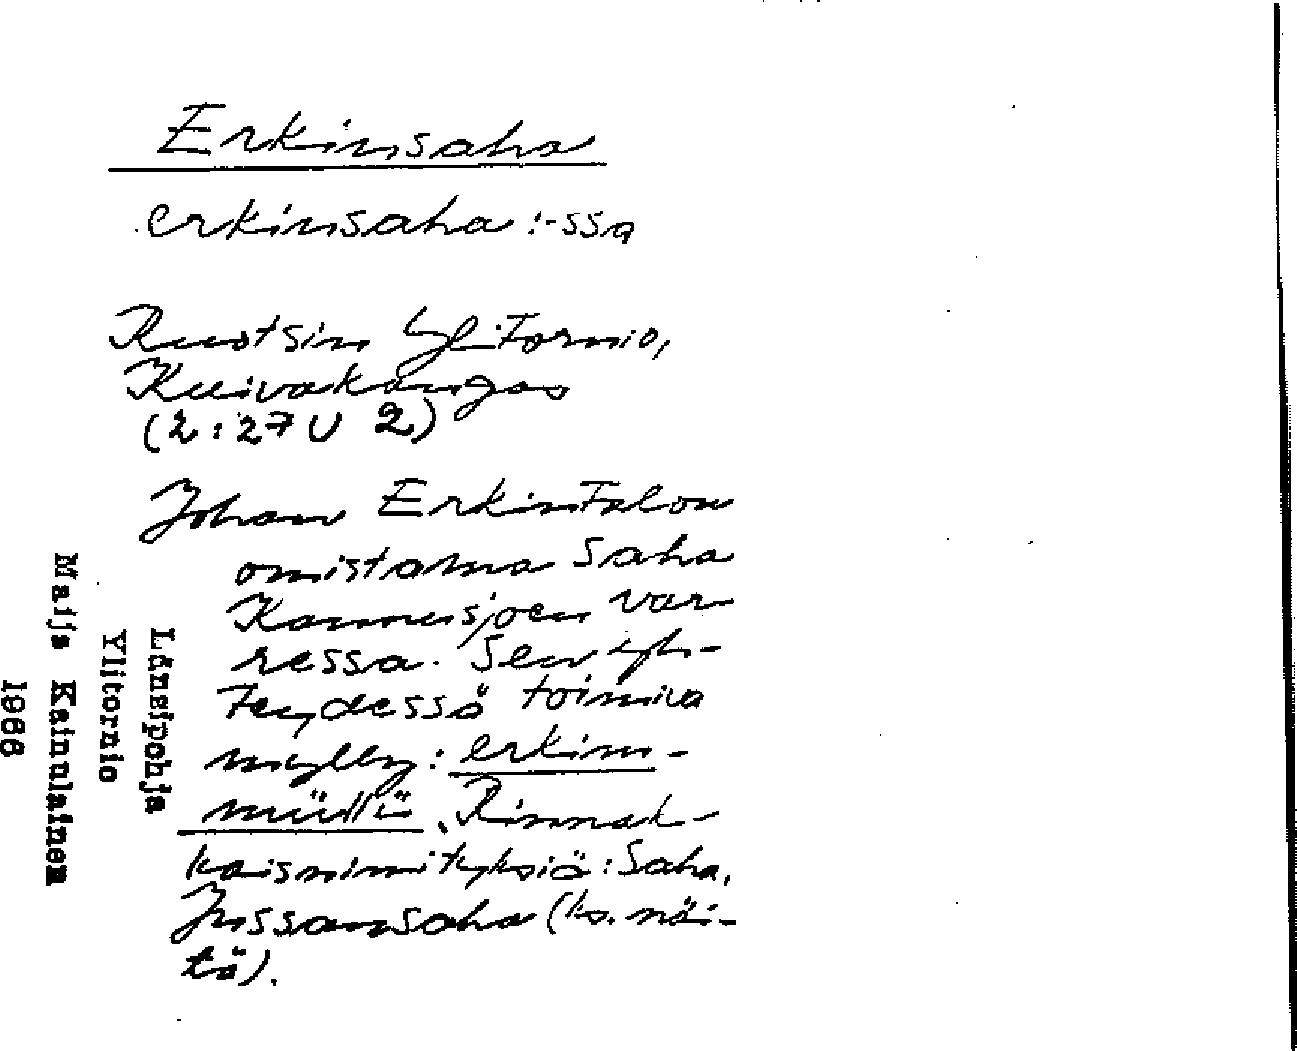 Erkinsaha
erkinsaha :-ssa
Ruotsin Yli-Tornio,
Kuivakangas
(2:27 U 2)
Johan Erkintalon
omistama saha
Kannusjoen var-
ressa. Sen yh-
teydessä toimiva
mylly: erkim-
müllü. Rinnak-
kaisnimityksiä: Saha,
Jussansaha (ks. näi-
tä).
Länsipohja
Ylitornio
Maija Kainulainen
1966